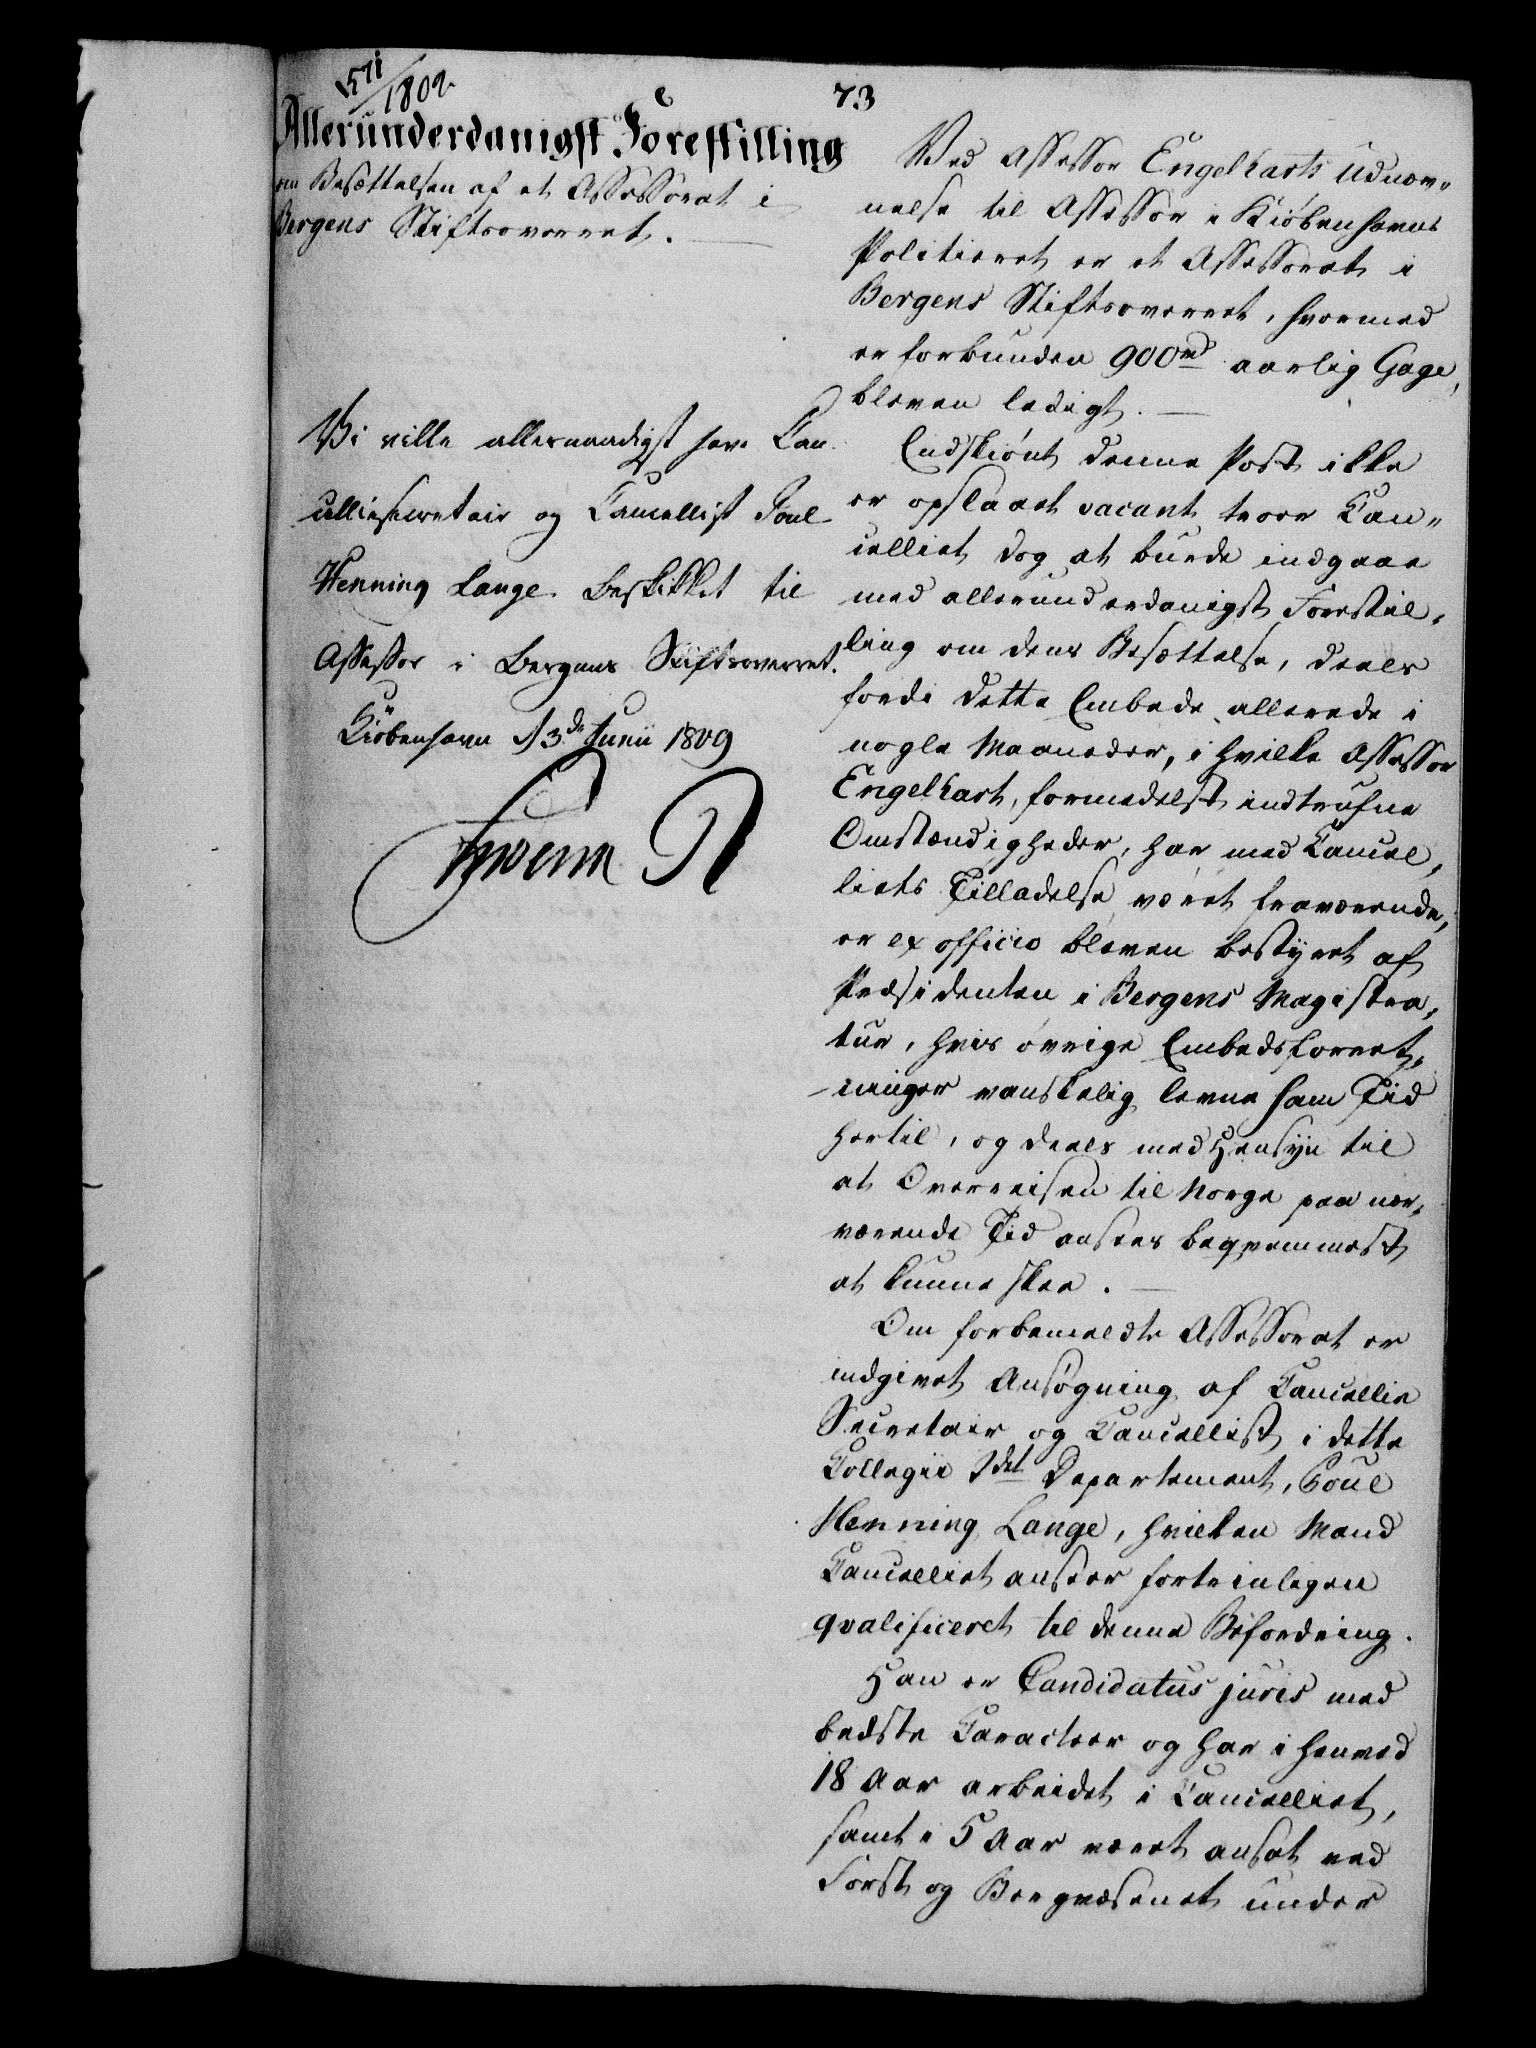 1571/1809
73
Allerunderdanigst Forestilling
om Besættelsen af et Assessorat i
Bergens Stiftsoverret.
Vi ville allernaadigst have Can-
celliesecretair og Cancellist Poul
Henning Lange beskikket til
Assessor i Bergens Stiftsoverret.
Kiöbenhavn d 3de Junii 1809
Frederik R
Ved Assessor Engelharts Udnæv-
nelse til Assessor i Kiöbenhavns
Politieret er et Assessorat i
Bergens Stiftsoverret, hvormed
er forbunden 900 rd aarlig Gage,
bleven ledigt.
Endskiönt denne Post ikke
er opslaaet vacant troer Can-
celliet dog at burde indgaae
med allerunderdanigst Forestil-
ling om dens Besættelse, deels
fordi dette Embede allerede i
nogle Maaneder, i hvilke Assessor
Engelhart, formedelst indtrufne
Omstændigheder, har med Cancel-
liets Tilladelse været fraværende,
er ex officio bleven bestyret af
Præsidenten i Bergens Magistra-
tur, hvis övrige Embedsforret-
ninger vanskelig levne ham Tid
hertil, og deels med Hensyn til
at Overreisen til Norge paa nær-
værende Tid ansees beqvemmest
at kunne skee.
Om forbemeldte Assessorat er
indgivet Ansögning af Cancellie
Secretair og Cancellist i dette
Collegii 2det Departement, Poul
Henning Lange, hvilken Mand
Cancelliet anseer fortrinligen
qvalificeret til denne Befordring.
Han er Candidatus juris med
bedste Caracteer og har i henved
18 Aar arbeidet i Cancelliet,
samt i 5 Aar været ansat ved
Forst og Bergvæsenet under